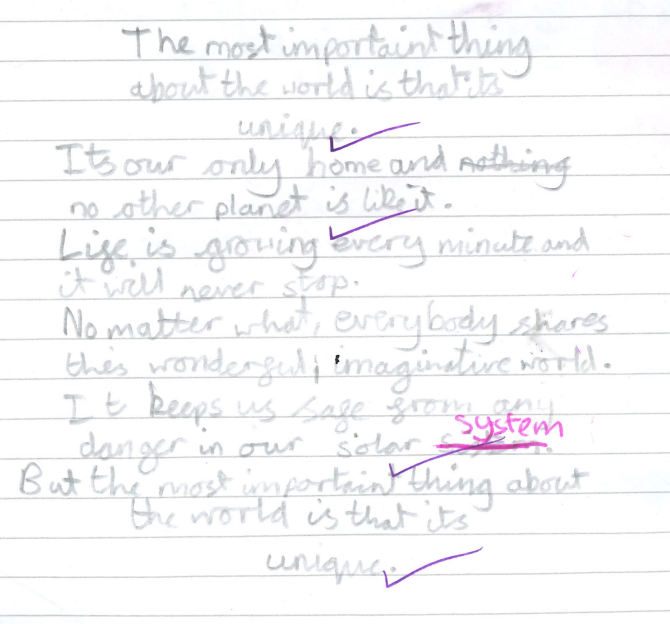 The most importaint thing
about the world is that its
unique.
Its our only home and nothing
no other planet is like it.
Life is growing every minute and
it will never stop.
No matter what, everybody shares
this wonderful, imaginative world.
It keeps us safe from any
system
danger in our solar
But the most importaint thing about
the world is that its
unique.